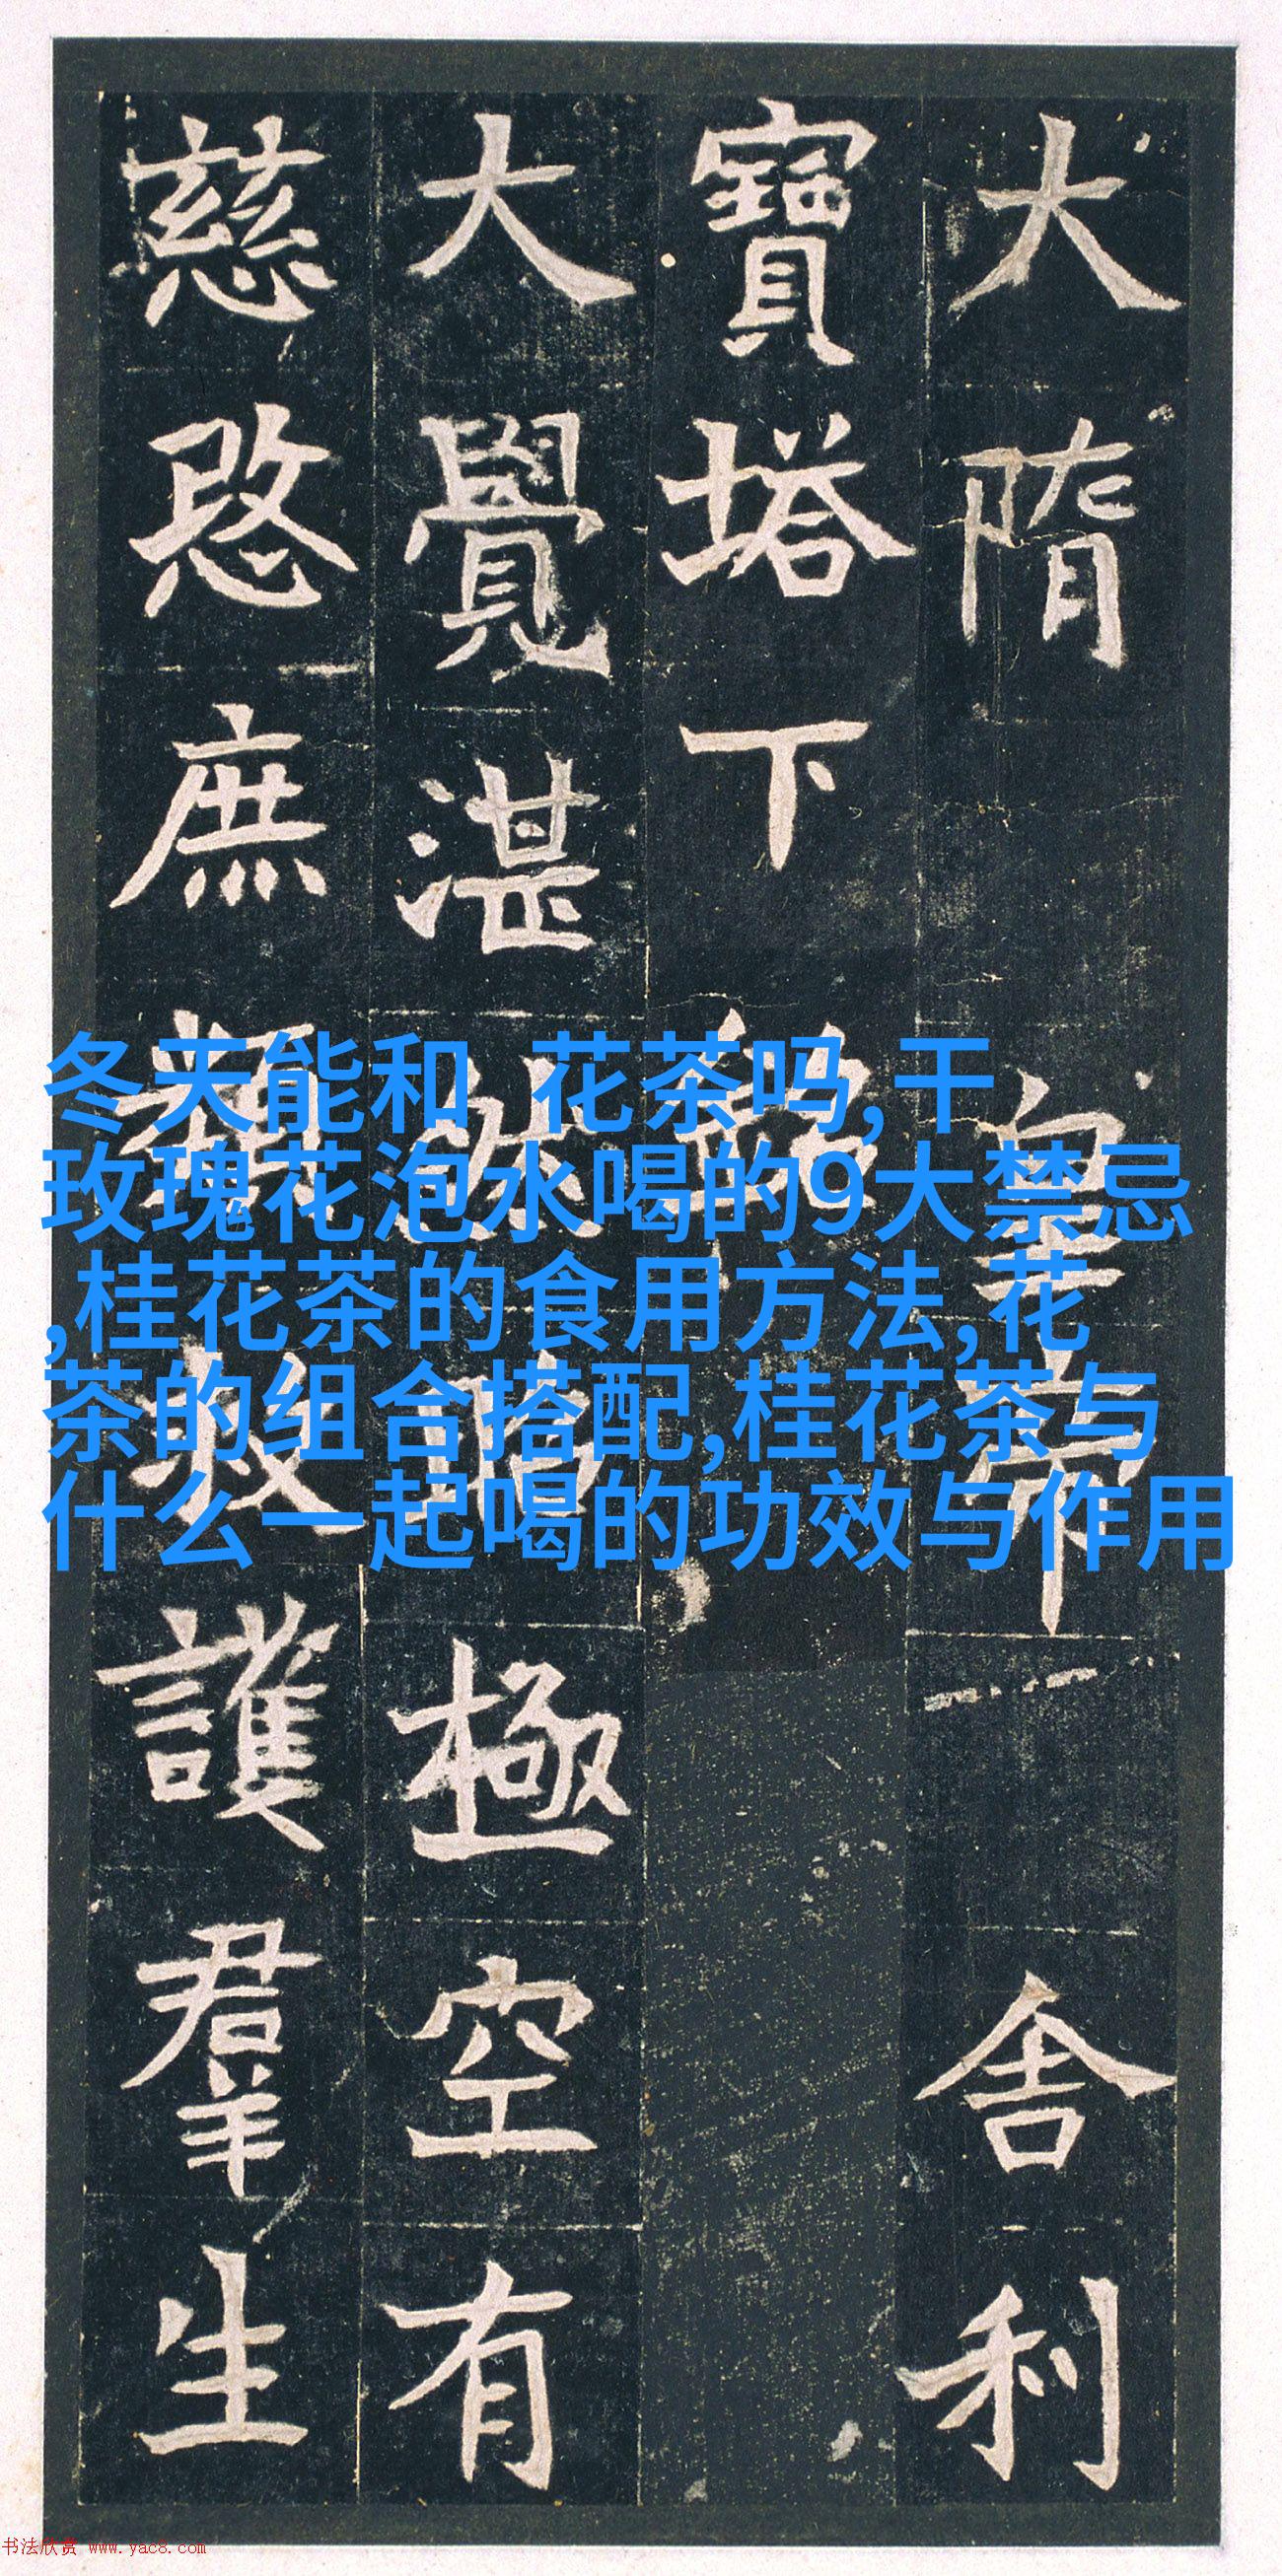 大隋皇帝舍利
寶塔下銘
大覺湛然昭極空有
慈愍庶類救護羣生
冬天能和 花茶吗,干
玫瑰花泡水喝的9大禁忌
,桂花茶的食用方法,花
茶的组合搭配,桂花茶与
什么一起喝的功效与作用
书法欣赏 www.yac8.com